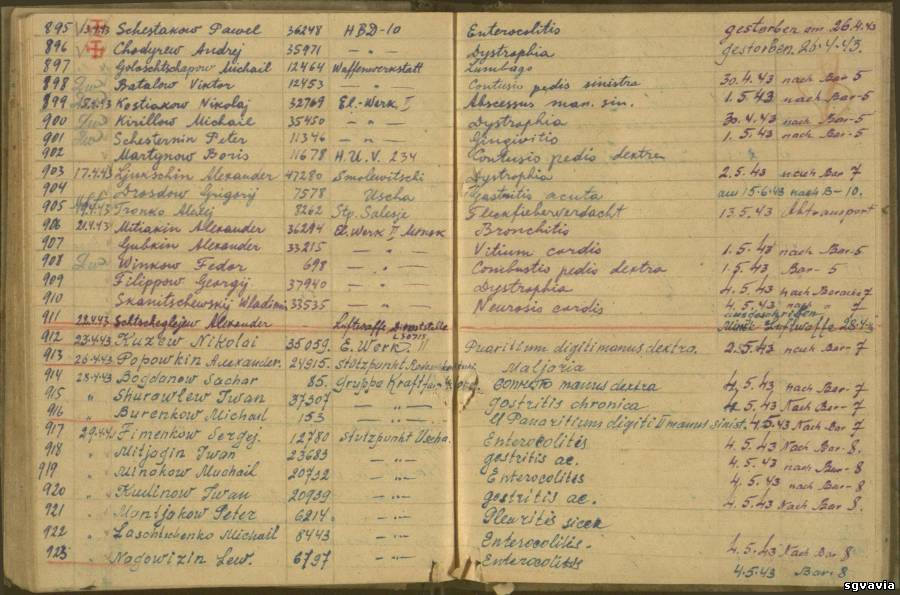 895 13.4.43 Schestakow Pawel 36248 HBD-10 Enterocolitis gestorben am 26.4.43
896 Chodyrew Andrej 35971 — " — Dystrophia gestorben 26.4.43.
897 Goloschtschapow Michail 12464 Waffenwerkstatt Lumbago
898 Batalow Viktor 12453 — " — Contusio pedis sinistra 30.4.43 nach Bar 5
899 15.4.43 Kostiakow Nikolaj 32769 El.-Werk I Abscessus man. sin. 1.5.43 nach Bar-5
900 Kirillow Michail 35450 — " — Dystrophia 30.4.43 nach Bar-5
901 Schesternin Peter 11346 — " — Gingivitis 1.5.43 nach Bar-5
902 Martynow Boris 11678 H.U.V. 234 Contusio pedis dextra
903 17.4.43 Ljukschin Alexander 47280 Smolewitschi Dystrophia 2.5.43 nach Bar 7
904 Drosdow Grigorij 7578 Uscha Gastritis acuta am 15.6.43 nach B-10.
905 19.4.43 Tronko Alexej 8262 Stp. Salesje Fleckfieberverdacht 13.5.43 Abtransport
906 21.4.43 Mitiakin Alexander 36294 El. Werk II Minsk Bronchitis
907 Gubkin Alexander 33215 — " — Vitium cordis 1.5.43 nach Bar-5
908 Winkow Fedor 698 — " — Combustio pedis dextra 1.5.43 Bar-5
909 Filippow Georgij 37940 — " — Dystrophia 4.5.43 nach Baracke 7
910 Skanitschewskij Wladimir 33535 — " — Neurosis cordis 4.5.43 nach Bar 7
911 22.4.43 Schtscheglejew Alexander Luftwaffe Dienststelle L30711 ausgeschrieben Minsk Luftwaffe 28.4.43
912 23.4.43 Kuzew Nikolai 35059. E. Werk. II Panaritium digiti manus dextra. 2.5.43 nach Bar-7
913 26.4.43 Popowkin Alexander. 24915. Stützpunkt Maljaria
914 28.4.43 Bogdanow Sachar 85. Gruppe manus dextra 4.5.43 nach Bar-7
915 " Shurowlew Iwan 37307 — " — gostritis chronica 4.5.43 Nach Bar-7
916 " Burenkow Michail 153 — " — Panaritium digiti II manus sinist. 4.5.43 Nach Bar 7
917 29.4.43 Fimenkow Sergej. 12780 Stutzpunkt Uscha. Enterocolitis 4.5.43 Nach Bar-8.
918 " Mitjagin Iwan 23683 — " — gostritis ac. 4.5.43 nach Bar-8
919 " Minakow Michail 20732 — " — Enterocolitis 4.5.43 nach Bar-8
920 " Kudinow Iwan 20939 — " — gostritis ac. 4.5.43 Nach Bar-8.
921 " Montjakow Peter 6214 — " — Pleuritis sicca
922 " Laschtschenko Michail 8443 — " — Enterocolitis. 4.5.43 Nach Bar 8
923 " Nogowizin Lew. 6797 — " — Enterocolitis 4.5.43 Bar-8
sgvavia